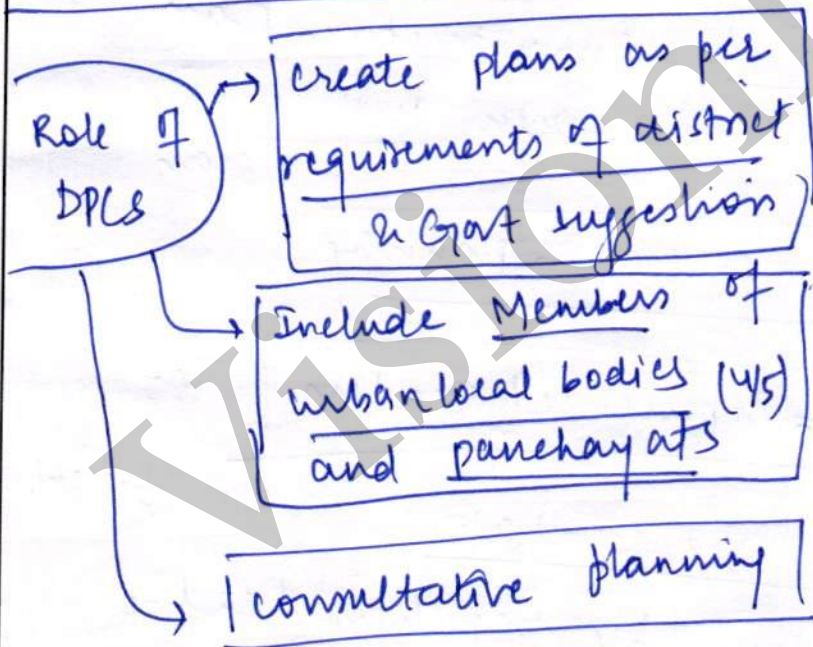 Role of
DPCs
create plans as per
requirements of district
& Govt suggestion
Include Members of
urban local bodies (4/5)
and panchayats
consultative planning
Vision